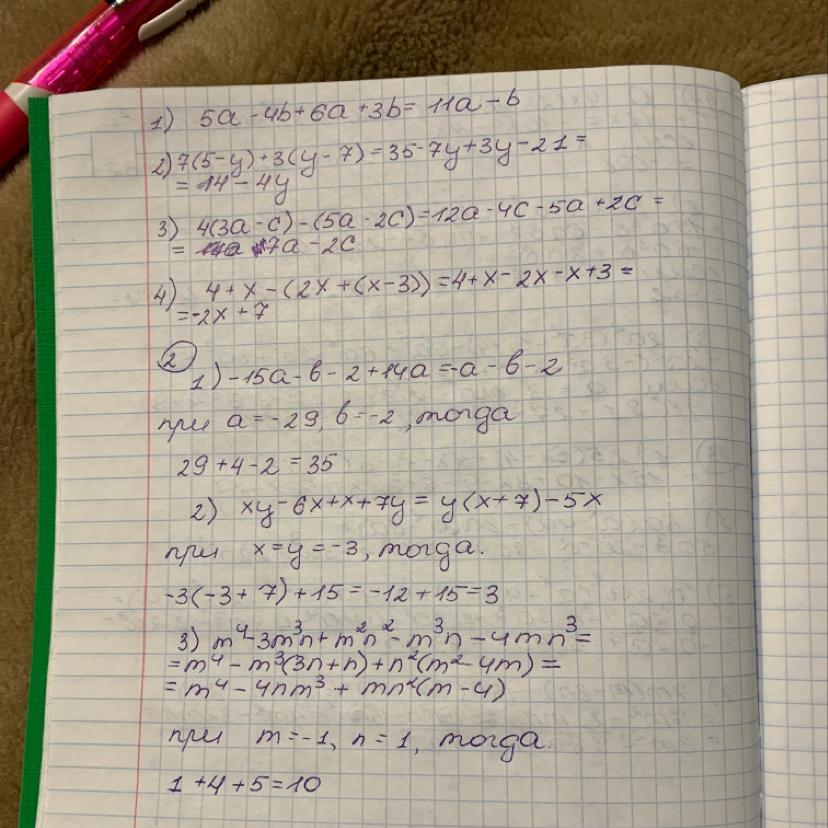 1) 5a - 4b + 6a + 3b = 11a - b
2) 7(5-y) + 3(y-7) = 35 - 7y + 3y - 21 =
= 14 - 4y
3) 4(3a-c) - (5a-2c) = 12a - 4c - 5a + 2c =
= 7a - 2c
4) 4 + x - (2x + (x-3)) = 4 + x - 2x - x + 3 =
= -2x + 7
2
1) -15a - в - 2 + 14a = -a - в - 2
при a = -29, в = -2, тогда
29 + 4 - 2 = 35
2) xy - 6x + x + 7y = y(x+7) - 5x
при x = y = -3, тогда.
-3(-3+7) + 15 = -12 + 15 = 3
3) m⁴ - 3m³n + m²n² - m³n - 4mn³ =
= m⁴ - m³(3n+n) + n²(m² - 4m) =
= m⁴ - 4nm³ + mn²(m-4)
при m = -1, n = 1, тогда
1 + 4 + 5 = 10